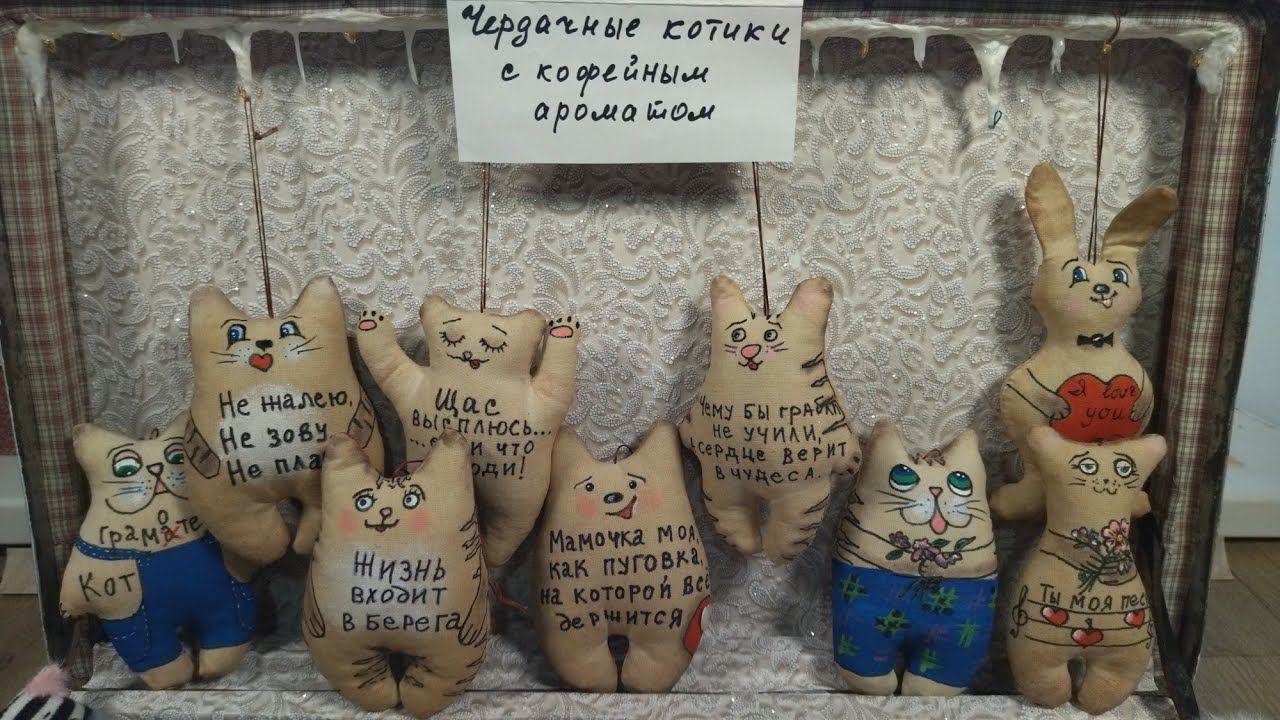 Чердачные котики
с кофейным
ароматом
Не жалею,
Не зову
Не пла
Щас
высплюсь...
что
Чему бы грабли
не учили,
сердце верит
в чудеса.
I love
you
о
Грамате
Кот
Жизнь
входит
в берега
Мамочка моя,
как пуговка,
на которой всё
держится
Ты моя пес